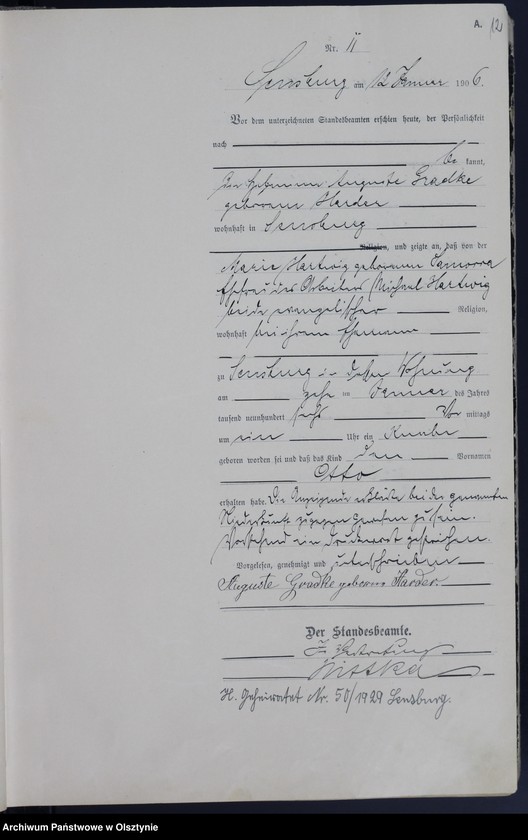 A. 12
Nr. 11
Sensburg am 12 Januar 1906.
Vor dem unterzeichneten Standesbeamten erschien heute, der Persönlichkeit
nach
be kannt,
die Hebamme Auguste Gradke
geborene Harder
wohnhaft in Sensburg
Religion, und zeigte an, daß von der
Marie Hartwig geborenen
Ehefrau des Arbeiters Michael Hartwig
beide evangelischer Religion,
wohnhaft bei ihrem Ehemann
zu Sensburg in dessen Wohnung
am zehn ten Januar des Jahres
tausend neunhundert sechs Vor mittags
um ein Uhr ein Knabe
geboren worden sei und daß das Kind den Vornamen
Otto
erhalten habe. Die Anzeigende erklärte bei der genannten
Niederkunft zugegen gewesen zu sein.
Vorstehend ein Druckwort gestrichen.
Vorgelesen, genehmigt und unterschrieben
Auguste Gradke geborene Harder.
Der Standesbeamte.
In Vertretung
H. Geheiratet Nr. 50/1929 Sensburg.
Archiwum Państwowe w Olsztynie